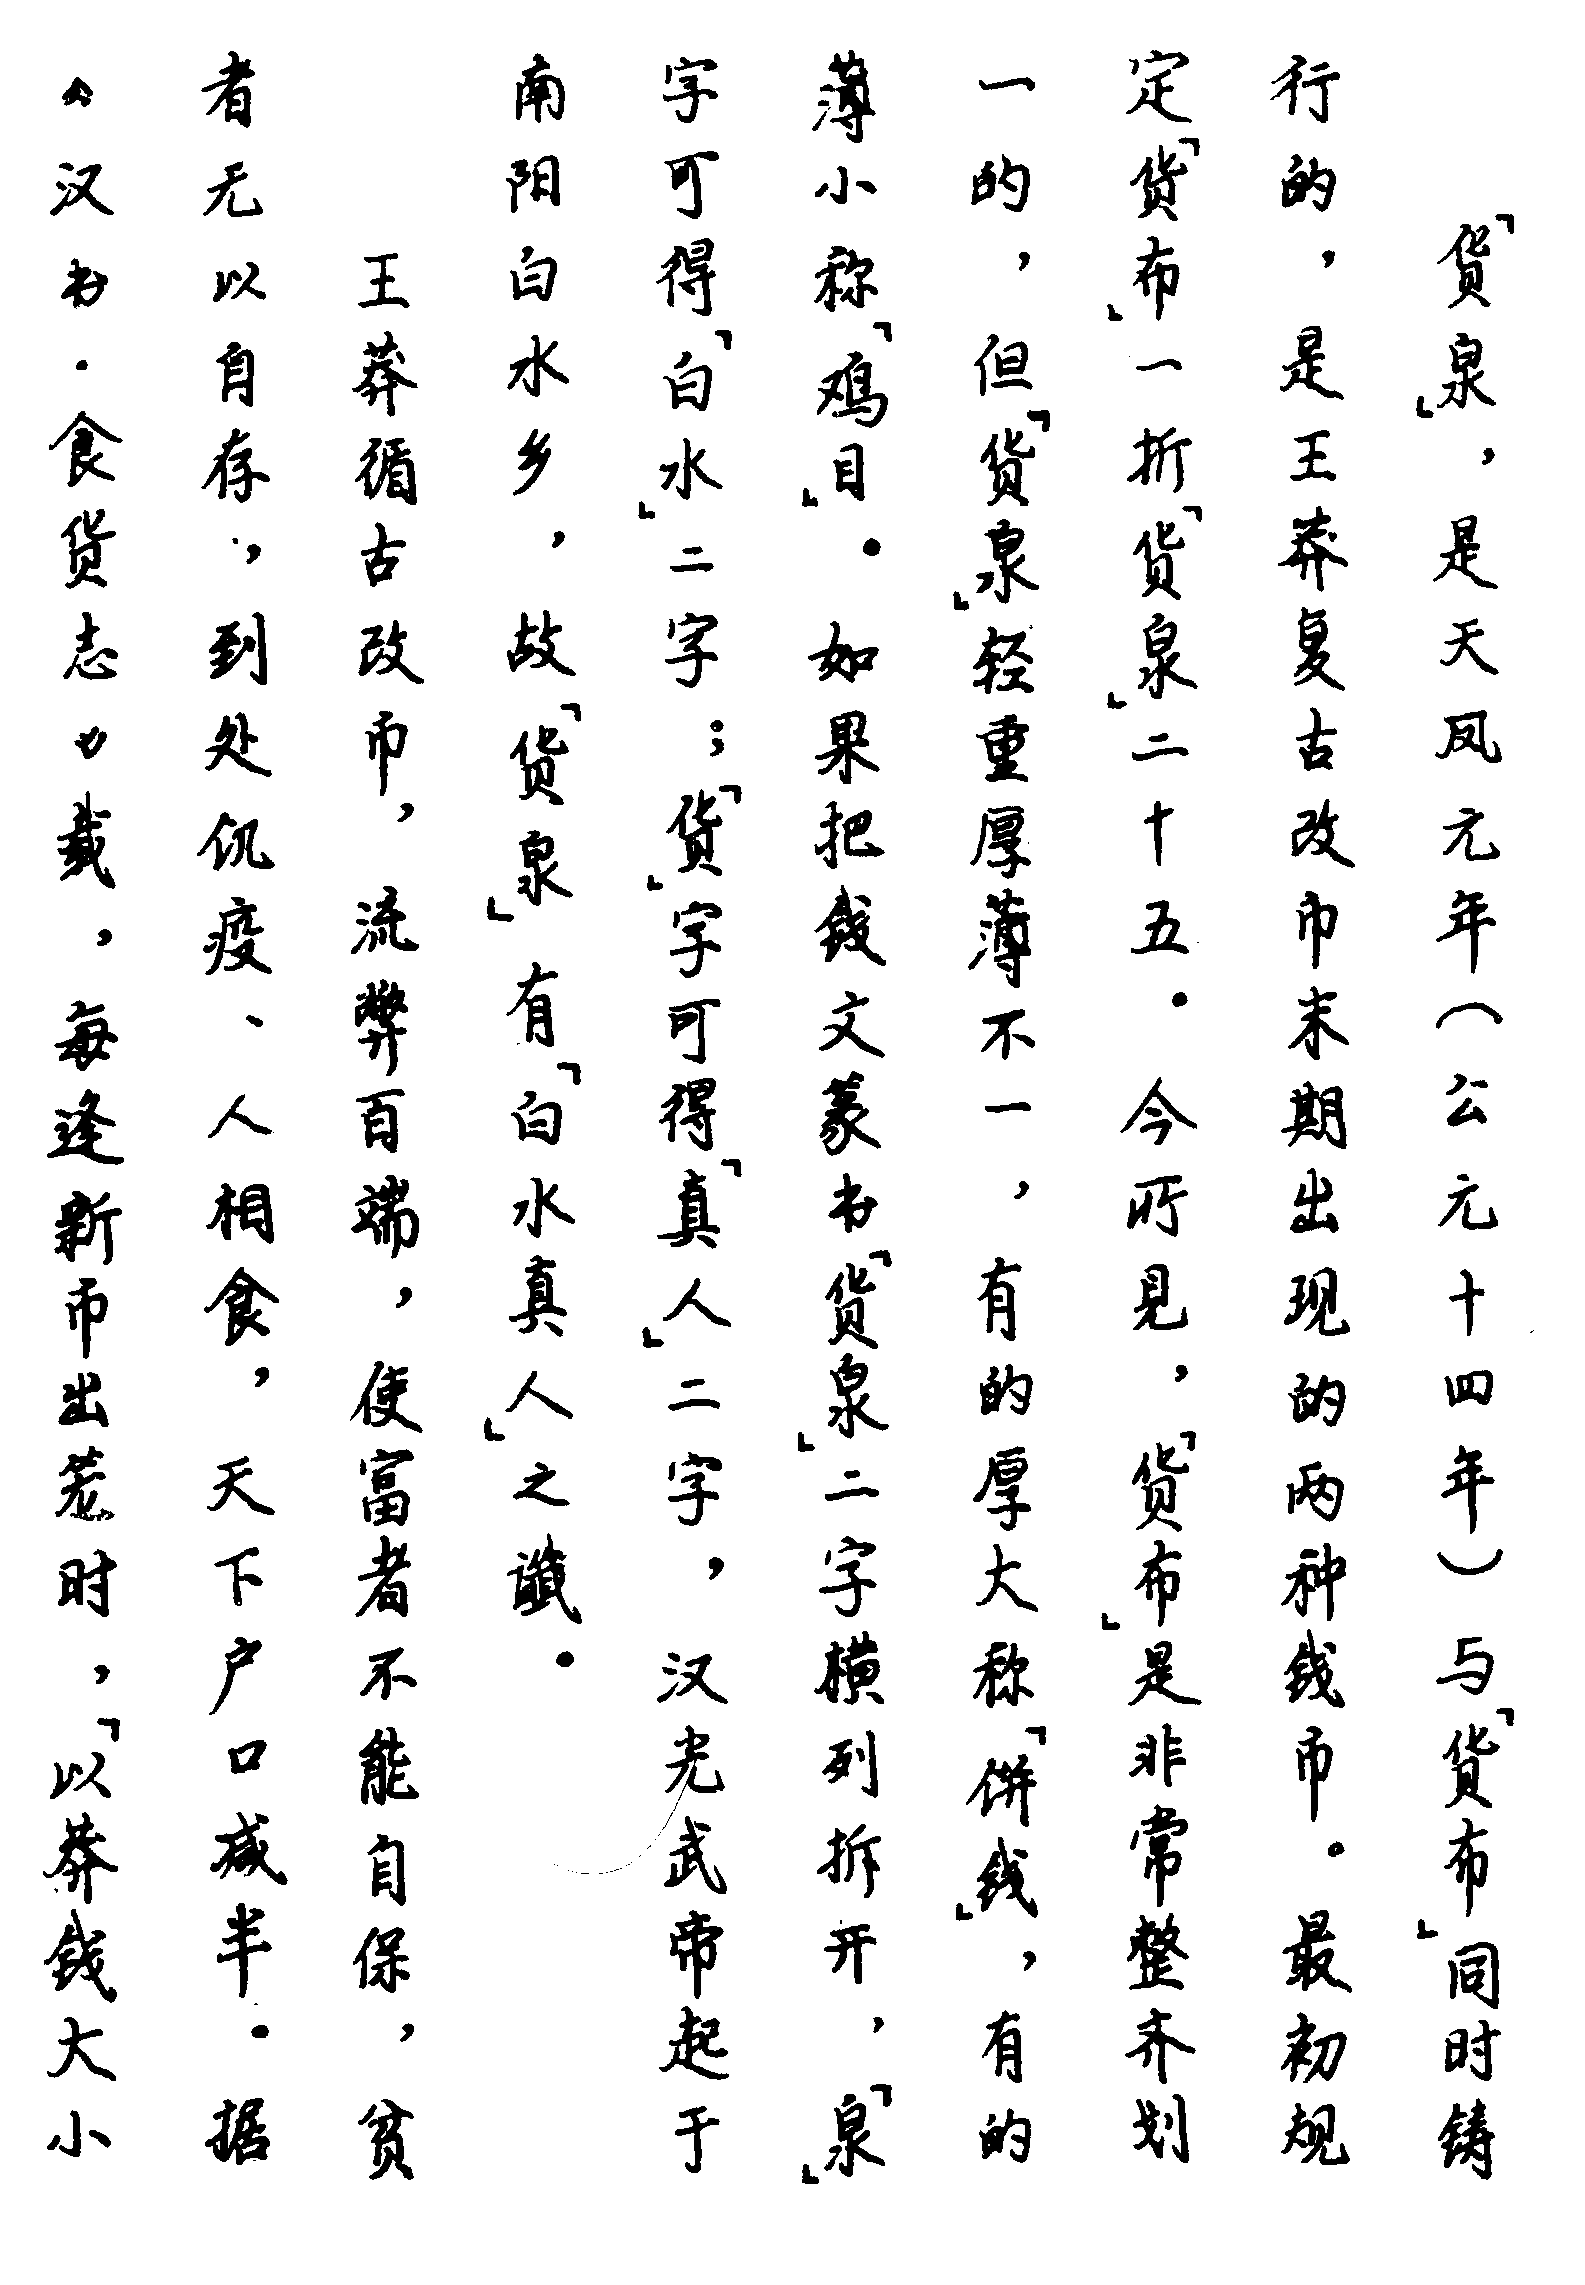 「货泉」，是天凤元年（公元十四年）与「货布」同时铸
行的，是王莽复古改币末期出现的两种钱币。最初规
定「货布」一折「货泉」二十五。今所见，「货布」是非常整齐划
一的，但「货泉」轻重厚薄不一，有的厚大称「饼钱」，有的
薄小称「鸡目」。如果把钱文篆书「货泉」二字横列拆开，「泉」
字可得「白水」二字；「货」字可得「真人」二字，汉光武帝起于
南阳白水乡，故「货泉」有「白水真人」之谶。
王莽循古改币，流弊百端，使富者不能自保，贫
者无以自存，到处饥疫、人相食，天下户口减半。据
《汉书·食货志》载，每逢新币出笼时，「以莽钱大小